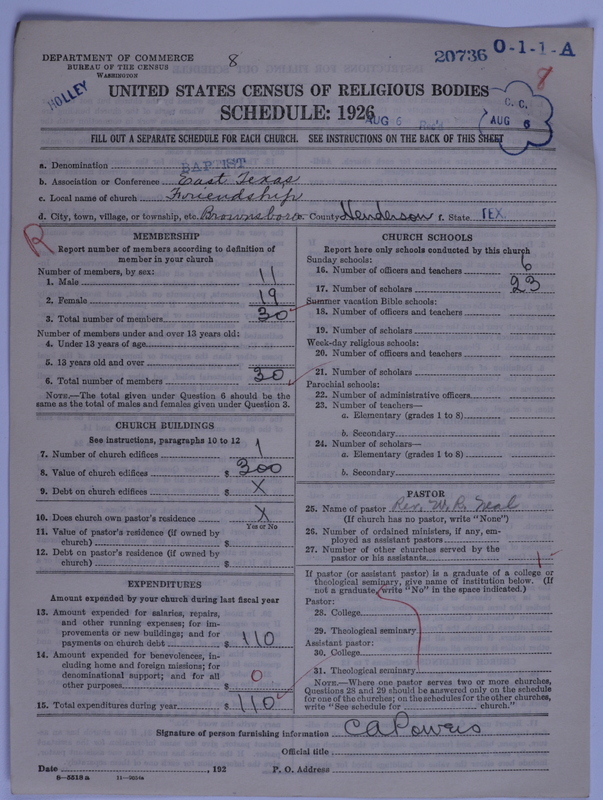 DEPARTMENT OF COMMERCE 8 20736 O-1-1-A
BUREAU OF THE CENSUS
WASHINGTON
HOLLEY
8
UNITED STATES CENSUS OF RELIGIOUS BODIES
SCHEDULE: 1926
AUG 6 Rec'd
C. C.
AUG 6
FILL OUT A SEPARATE SCHEDULE FOR EACH CHURCH. SEE INSTRUCTIONS ON THE BACK OF THIS SHEET
a. Denomination BAPTIST
b. Association or Conference East Texas
c. Local name of church Friendship
d. City, town, village, or township, etc. Brownsboro e. County Henderson f. State TEX.
R
MEMBERSHIP
Report number of members according to definition of
member in your church
Number of members, by sex:
1. Male 11
2. Female 19
3. Total number of members 30
Number of members under and over 13 years old:
4. Under 13 years of age
5. 13 years old and over
6. Total number of members 30
NOTE.—The total given under Question 6 should be the
same as the total of males and females given under Question 3.
CHURCH BUILDINGS
See instructions, paragraphs 10 to 12
7. Number of church edifices 1
8. Value of church edifices $ 300
9. Debt on church edifices $ X
10. Does church own pastor's residence X
Yes or No
11. Value of pastor's residence (if owned by
church) $
12. Debt on pastor's residence (if owned by
church) $
EXPENDITURES
Amount expended by your church during last fiscal year
13. Amount expended for salaries, repairs,
and other running expenses; for im-
provements or new buildings; and for
payments on church debt $ 110
14. Amount expended for benevolences, in-
cluding home and foreign missions; for
denominational support; and for all
other purposes $ 0
15. Total expenditures during year $ 110
CHURCH SCHOOLS
Report here only schools conducted by this church
Sunday schools:
16. Number of officers and teachers 6
17. Number of scholars 23
Summer vacation Bible schools:
18. Number of officers and teachers
19. Number of scholars
Week-day religious schools:
20. Number of officers and teachers
21. Number of scholars
Parochial schools:
22. Number of administrative officers
23. Number of teachers—
a. Elementary (grades 1 to 8)
b. Secondary
24. Number of scholars—
a. Elementary (grades 1 to 8)
b. Secondary
PASTOR
25. Name of pastor Rev. W. R. Neal
(If church has no pastor, write "None")
26. Number of ordained ministers, if any, em-
ployed as assistant pastors
27. Number of other churches served by the
pastor or his assistants 1
If pastor (or assistant pastor) is a graduate of a college or
theological seminary, give name of institution below. (If
not a graduate, write "No" in the space indicated.)
Pastor:
28. College
29. Theological seminary
Assistant pastor:
30. College
31. Theological seminary
NOTE.—Where one pastor serves two or more churches,
Questions 28 and 29 should be answered only on the schedule
for one of the churches; on the schedules for the other churches,
write "See schedule for church."
Signature of person furnishing information C A Powers
Official title
Date , 192 P. O. Address
8—5518 a